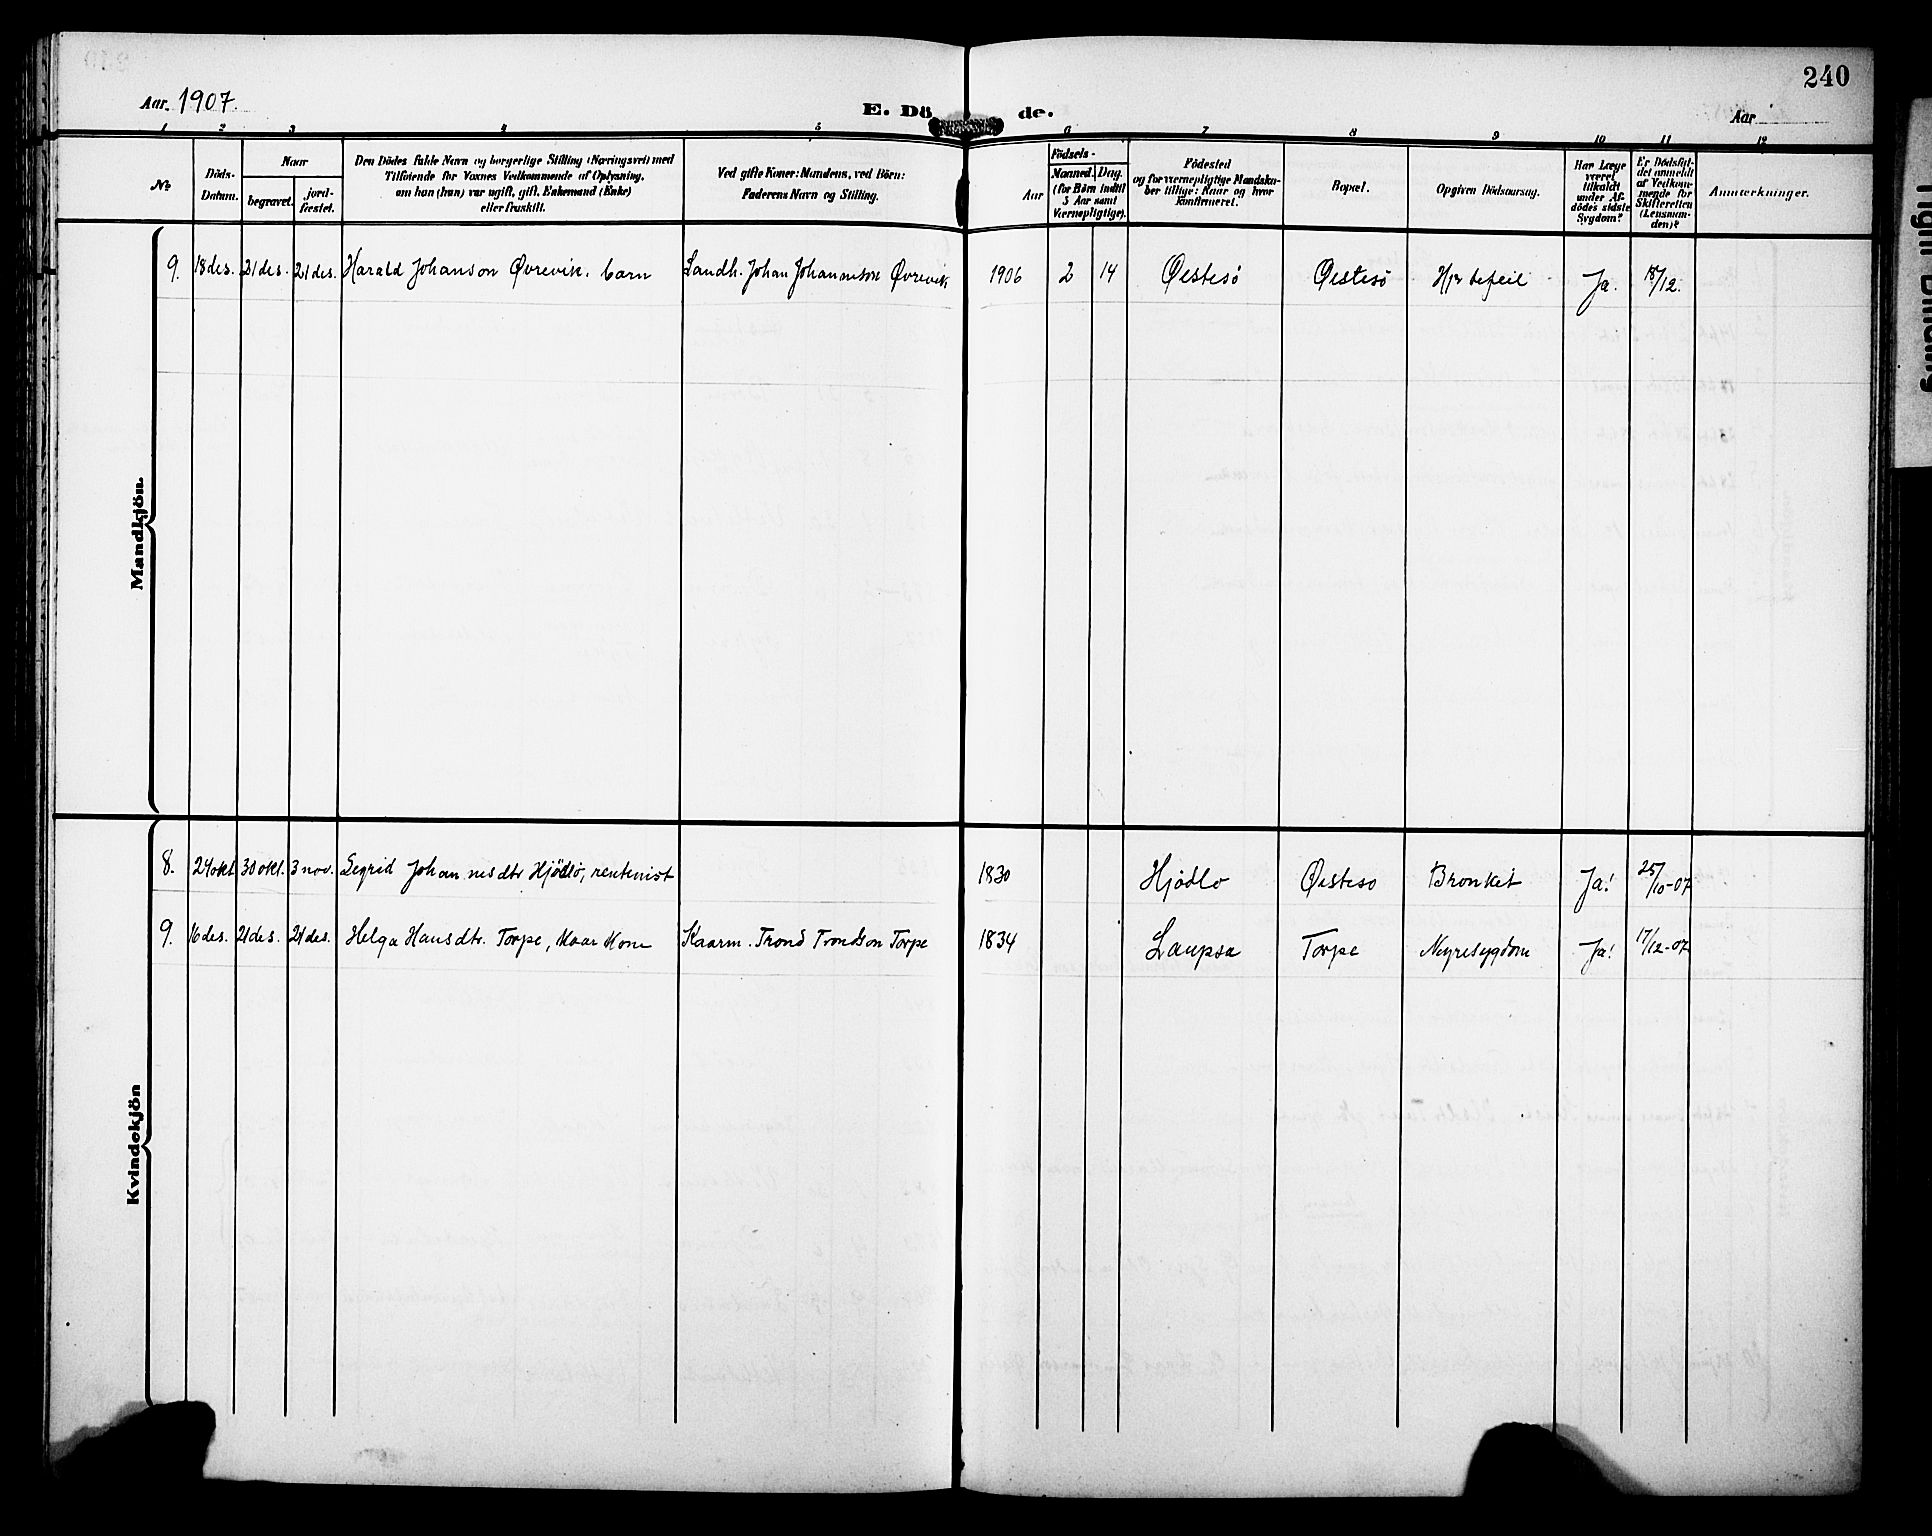 240
Aar. 1907.
E. Dö de.
Aar
1 2 3 4 5 6 7 8 9 10 11 12
No
Döds-
Datum.
Naar
begravet.
jord-
fæstet.
Den Dödes fulde Navn og borgerlige Stilling (Næringsvei) med
Tilföiende for Voxnes Vedkommende af Oplysning,
om hun (han) var ugift, gift, Enkemand (Enke)
eller fraskilt.
Ved gifte Koner: Mandens, ved Börn:
Faderens Navn og Stilling.
Födsels-
Aar
Maaned. Dag.
(for Börn indtil
5 Aar samt
Værnepligtige).
Födested
og for værnepligtige Mandska-
ber tillige: Naar og hvor
konfirmeret.
Bopæl.
Opgiven Dödsaarsag.
Har Læge
været
tilkaldt
under Af-
dödes sidste
Sygdom?
Er Dödsfal-
det anmeldt
af Vedkom-
mende for
Skifteretten
(Lensman-
den)?
Anmærkninger.
Mandkjön.
9. 18 des. 21 des. 21 des. Harald Johanson Øvrevik, barn Landh. Johan Johannesson Øvrevik 1906 2 14 Øistesö Øistesö Hjertefeil Ja. 18/12.
Kvindekjön
8. 24 okt. 30 okt. 3 nov. Sigrid Johannesdtr Hjödlo, rentenist 1830 Hjödlo Øisteso Bronkit Ja! 25/10-07
9. 16 des. 21 des. 21 des. Helga Hansdtr. Torpe, kaar kone Kaarm. Trond Trondson Torpe 1834 Laupsa Torpe Nyresygdom Ja! 17/12-07